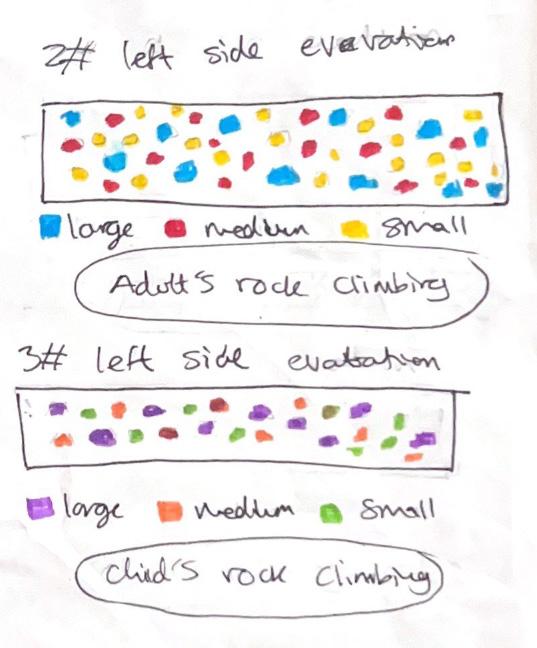 2# left side evevation
large medium small
Adult's rock climbing
3# left side evabation
large medium small
child's rock climbing